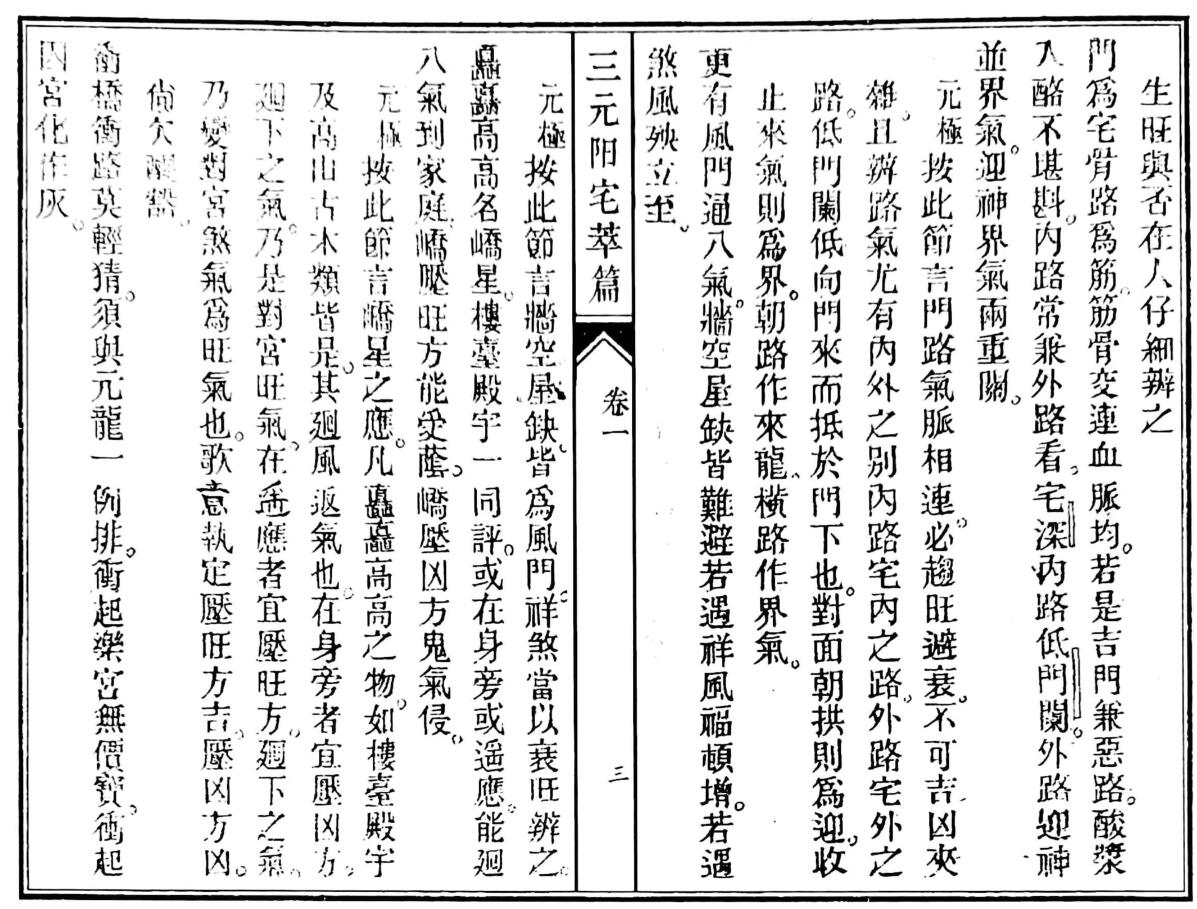 生旺與否在人仔細辨之
門爲宅骨路爲筋。筋骨交連血脈均。若是吉門兼惡路。酸漿
入酪不堪斟。內路常兼外路看。宅深內路低門闌。外路迎神
並界氣。迎神界氣兩重關。
元極按此節言門路氣脈相連。必趨旺避衰。不可吉凶夾
雜。且辨路氣尤有內外之別內路宅內之路。外路宅外之
路。低門闌低向門來而抵於門下也。對面朝拱則爲迎。收
止來氣則爲界。朝路作來龍。橫路作界氣。
更有風門通八氣。牆空屋缺皆難避若遇祥風福頓增。若遇
煞風殃立至。
三元阳宅萃篇
卷一
三
元極按此節言牆空屋缺。皆爲風門。祥煞當以衰旺辨之。
矗矗高高名嶠星。樓臺殿宇一同評。或在身旁或遥應。能廻
八氣到家庭。嶠壓旺方能受蔭。嶠壓凶方鬼氣侵。
元極按此節言嶠星之應。凡矗矗高高之物。如樓臺殿宇
及高山古木類皆是。其廻風返氣也。在身旁者宜壓凶方。
廻下之氣。乃是對宮旺氣。在遥應者宜壓旺方。廻下之氣。
乃變對宮煞氣爲旺氣也。歌意執定壓旺方吉。壓凶方凶。
尙欠醒豁。
衝橋衝路莫輕猜。須與元龍一例排。衝起樂宮無價寶。衝起
囚宮化作灰。